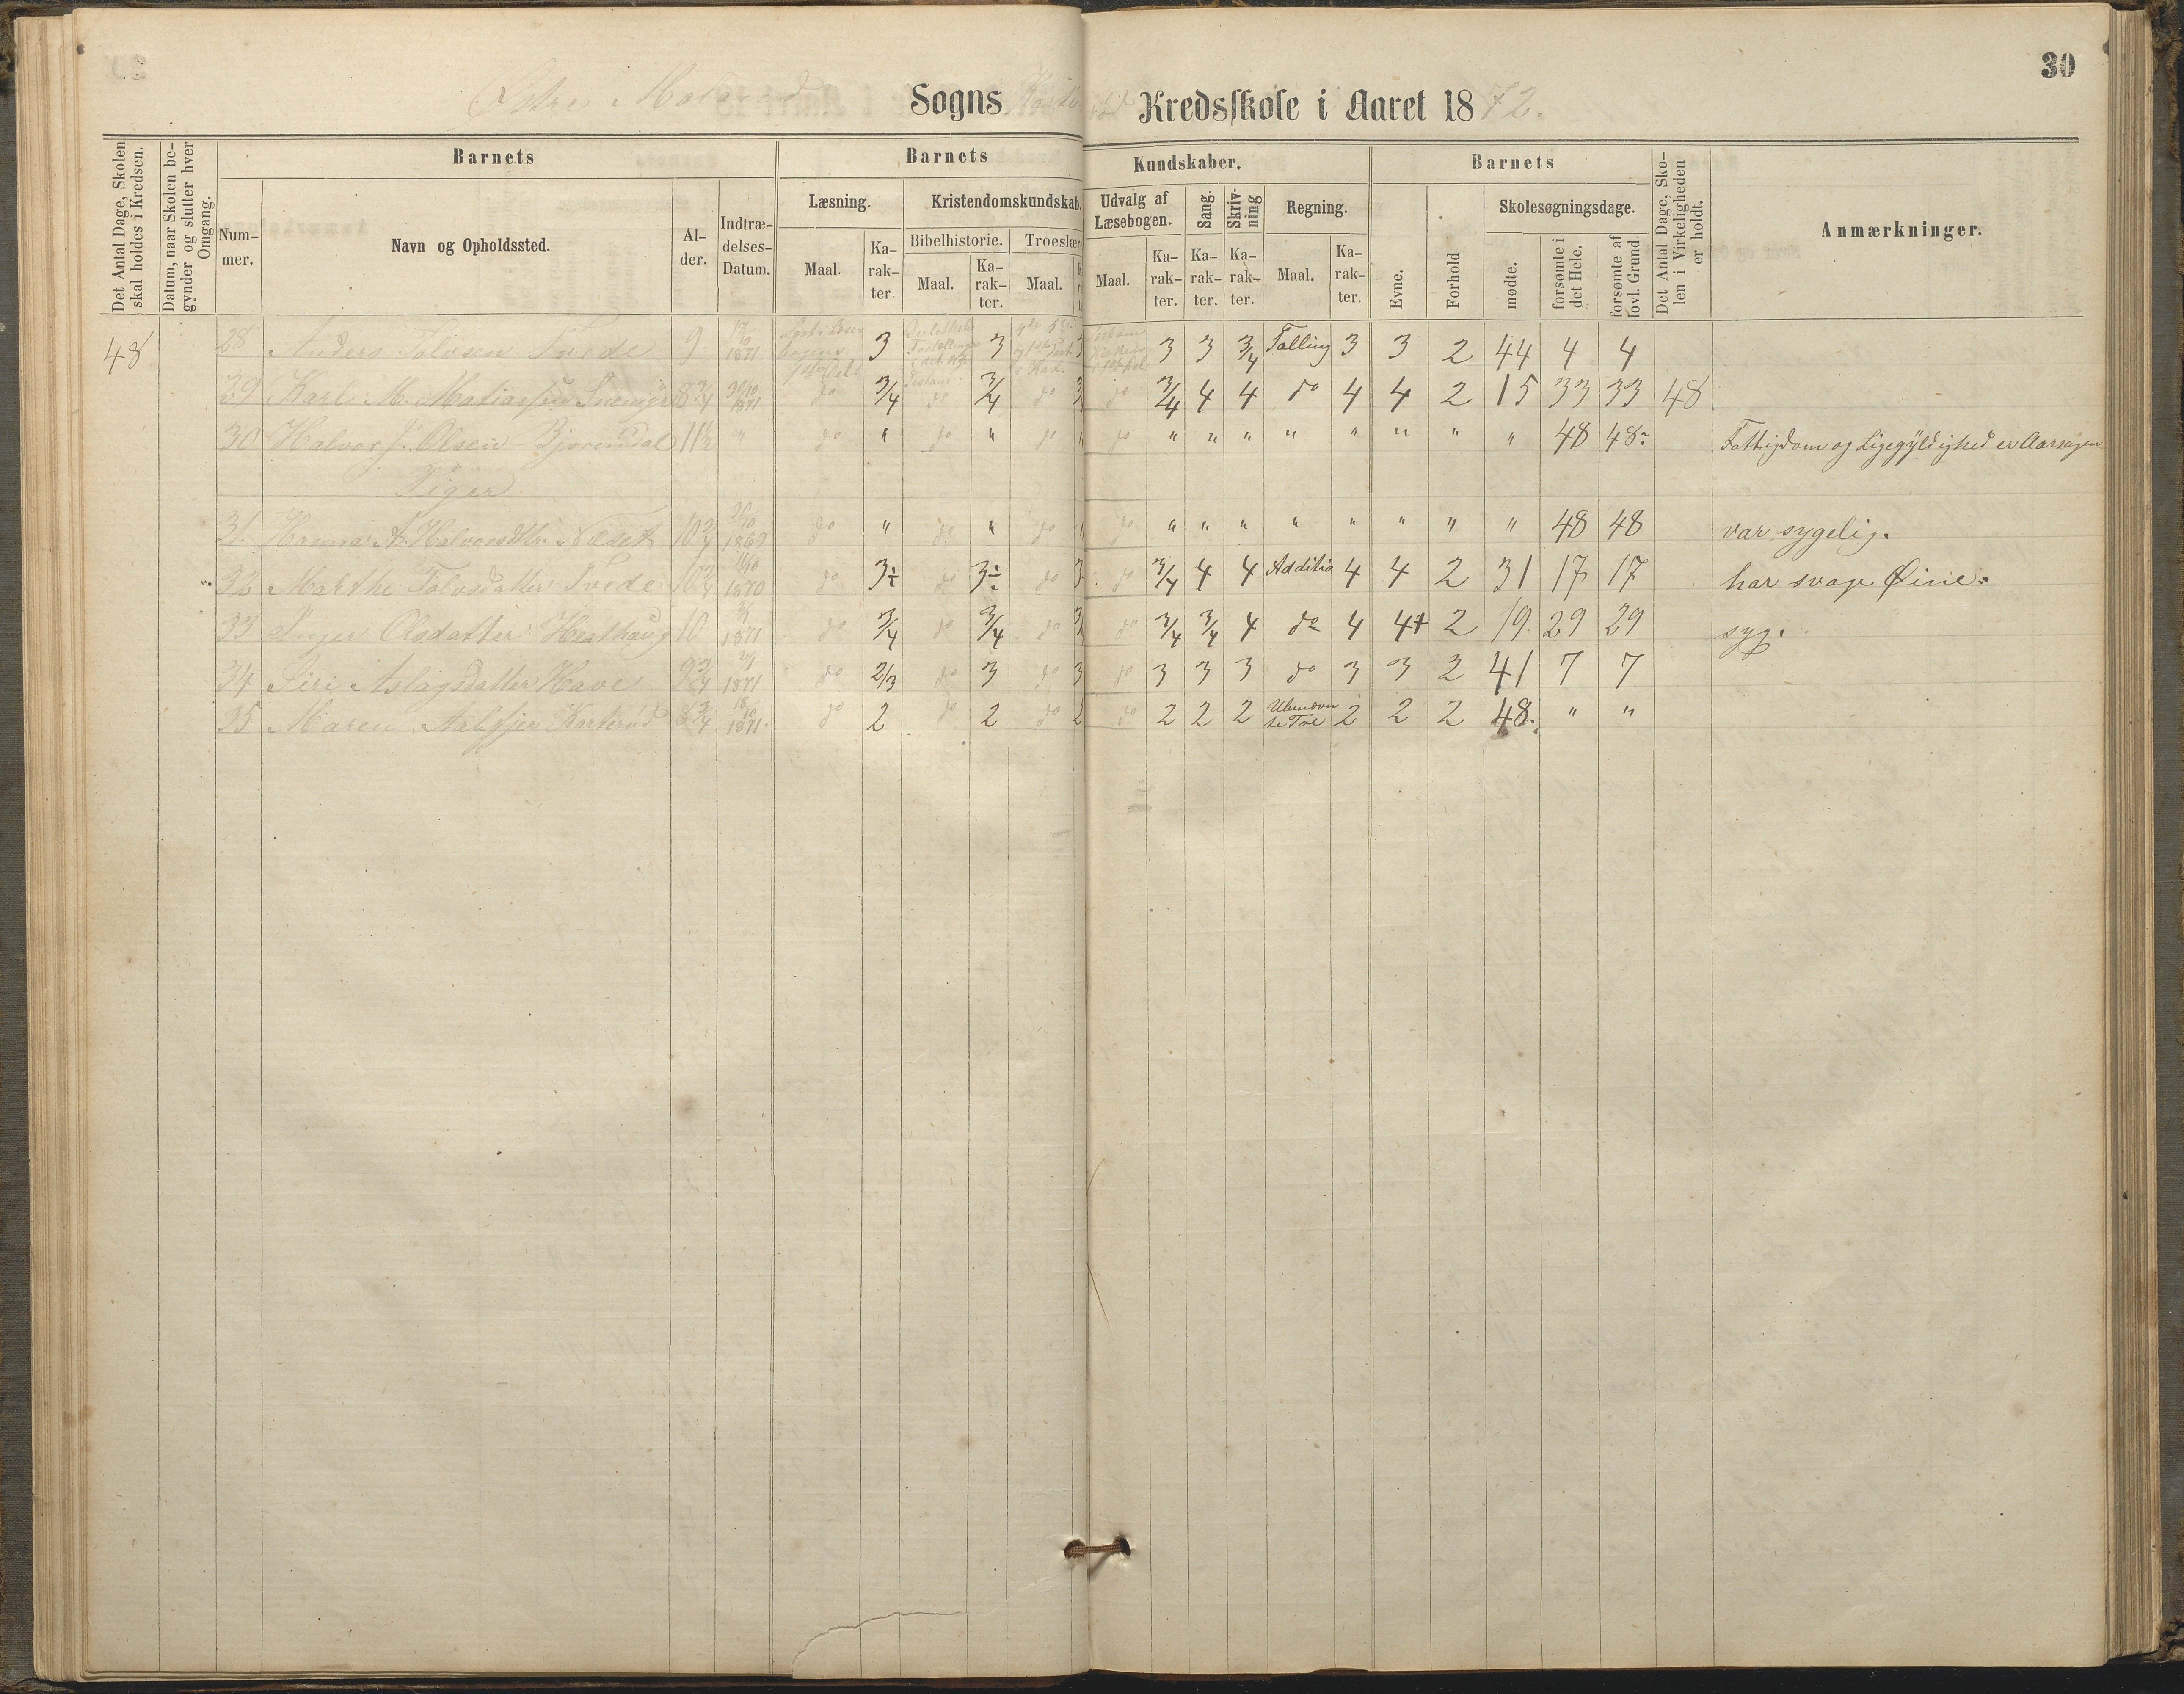 30
Østre Moland Sogns Kredsskole i Aaret 1872.
Det Antal Dage, Skolen skal holdes i Kredsen.
Datum, naar Skolen begynder og slutter hver Omgang.
Barnets
Barnets
Kundskaber.
Barnets
Det Antal Dage, Skolen i Virkeligheden er holdt.
Anmærkninger.
Nummer.
Navn og Opholdssted.
Alder.
Indtrædelses-Datum.
Læsning.
Kristendomskundskab.
Udvalg af Læsebogen.
Sang.
Skrivning
Regning.
Evne.
Forhold
Skolesøgningsdage.
Bibelhistorie.
Troeslær
Maal.
Karakter.
Maal.
Karakter.
Maal.
Maal.
Karakter.
Karakter.
Karakter.
Maal.
Karakter.
mødte.
forsømte i det Hele.
forsømte af lovl. Grund.
48 28 Anders Tolvsen Tvede 9 1871 3 3 3 3 3 3/4 Talling 3 3 2 44 4 4
29 Karl M. Matiassen 8 3/4 30/10 1871 do 3/4 do 3/4 do do 3/4 4 4 do 4 4 2 15 33 33 48
30 Halvor J. Olsen Bjorendal 11½ " do " do " do " do " " " " " " " " 48 48 Fattigdom og Ligegyldighed er Aarsagen
Piger
31. Hanna A. Halvorsdtr. Næset 10 3/4 1869 do " do " do " do " " " " " " " " 48 48 var sygelig.
32 Marthe Tolvsdatter Tvede 10 3/4 1870 do 3÷ do 3÷ do 3 do 3/4 4 4 Additio 4 4 2 31 17 17 har svage Øine.
33 Inger Olsdatter Hesthaug 10 1871 do 3/4 do 3/4 do do 3/4 3/4 4 do 4 4+ 2 19 29 29 syg.
34 Siri Aslagsdatter Have 9 3/4 1871 do 2/3 do 3 do 3 do 3 3 3 do 3 3 2 41 7 7
35 Maren Aalsfjer Karterød 8 3/4 1871. do 2 do 2 do 2 do 2 2 2 2 2 2 48. " "